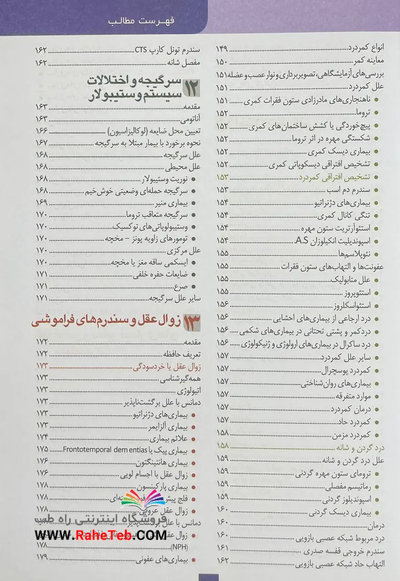 فهرست مطالب
انواع کمردرد ... ۱۴۹
معاینه کمر ... ۱۵۰
بررسی‌های آزمایشگاهی، تصویربرداری و نوار عصب و عضله ۱۵۱
علل کمردرد ... ۱۵۱
ناهنجاری‌های مادرزادی ستون فقرات کمری ... ۱۵۱
تروما ... ۱۵۲
پیچ‌خوردگی یا کشش ساختمان‌های کمری ... ۱۵۲
شکستگی مهره در اثر تروما ... ۱۵۲
بیماری دیسک کمری ... ۱۵۲
تشخیص افتراقی دیسکوپاتی کمری ... ۱۵۲
تشخیص افتراقی کمردرد ... ۱۵۳
سندرم دم اسب ... ۱۵۳
بیماری‌های دژنراتیو ... ۱۵۴
تنگی کانال کمری ... ۱۵۴
استئوآرتریت ستون مهره ... ۱۵۴
اسپوندیلیت انکیلوزان A.S ... ۱۵۴
نئوپلاسم‌ها ... ۱۵۵
عفونت‌ها و التهاب‌های ستون فقرات ... ۱۵۵
علل متابولیک ... ۱۵۵
استئوپروز ... ۱۵۵
استئواسکلروز ... ۱۵۶
درد ارجاعی از بیماری‌های احشایی ... ۱۵۶
درد کمر و پشتی تحتانی در بیماری‌های شکمی ... ۱۵۶
درد ساکرال در بیماری‌های ارولوژی و ژنیکولوژی ... ۱۵۶
سایر علل کمردرد ... ۱۵۷
کمردرد پوسچرال ... ۱۵۷
بیماری‌های روان‌شناختی ... ۱۵۷
موارد متفرقه ... ۱۵۷
درمان کمردرد ... ۱۵۷
کمردرد حاد ... ۱۵۷
کمردرد مزمن ... ۱۵۸
درد گردن و شانه ... ۱۵۸
علل درد گردن و شانه ... ۱۵۹
ترومای ستون مهره گردنی ... ۱۵۹
رماتیسم مفصلی ... ۱۵۹
اسپوندیلوز گردنی ... ۱۵۹
بیماری دیسک گردنی ... ۱۶۰
درمان ... ۱۶۰
درد مربوط شبکه عصبی بازویی ... ۱۶۱
سندرم خروجی قفسه صدری ... ۱۶۱
التهاب حاد شبکه عصبی بازویی ... ۱۶۲
سندرم تونل کارپ CTS ... ۱۶۲
مفصل شانه ... ۱۶۲
۱۲ سرگیجه و اختلالات
سیستم وستیبولار
مقدمه ... ۱۶۳
آناتومی ... ۱۶۳
تعیین محل ضایعه (لوکالیزاسیون) ... ۱۶۶
نحوه برخورد با بیمار مبتلا به سرگیجه ... ۱۶۷
علل سرگیجه ... ۱۶۸
علل محیطی ... ۱۶۸
نوریت وستیبولار ... ۱۶۸
سرگیجه حمله‌ای وضعیتی خوش‌خیم ... ۱۶۸
بیماری منیر ... ۱۶۹
سرگیجه متعاقب تروما ... ۱۷۰
وستیبولوپاتی‌های توکسیک ... ۱۷۰
تومورهای زاویه پونز - مخچه ... ۱۷۰
علل مرکزی ... ۱۷۰
ایسکمی ساقه مغز یا مخچه ... ۱۷۰
ضایعات حفره خلفی ... ۱۷۱
صرع ... ۱۷۱
سایر علل سرگیجه ... ۱۷۱
۱۳ زوال عقل و سندرم‌های فراموشی
مقدمه ... ۱۷۲
تعریف حافظه ... ۱۷۲
زوال عقل یا خردسودگی ... ۱۷۳
همه‌گیرشناسی ... ۱۷۳
اتیولوژی ... ۱۷۳
دمانس با علل برگشت‌ناپذیر ... ۱۷۳
بیماری‌های دژنراتیو ... ۱۷۳
بیماری آلزایمر ... ۱۷۳
علائم بیماری ... ۱۷۴
بیماری پیک یا Frontotemporal dementias ... ۱۷۵
بیماری هانتینگتون ... ۱۷۶
زوال عقل با اجسام لویی ... ۱۷۶
بیماری پارکینسون
فلج پیش
زوال عقل عروقی
دمانس با علل
زوال عقل
(NPH) ... ۱۷۸
بیماری‌های عفونی ... ۱۷۹
فروشگاه اینترنتی راه طب
www.RaheTeb.com